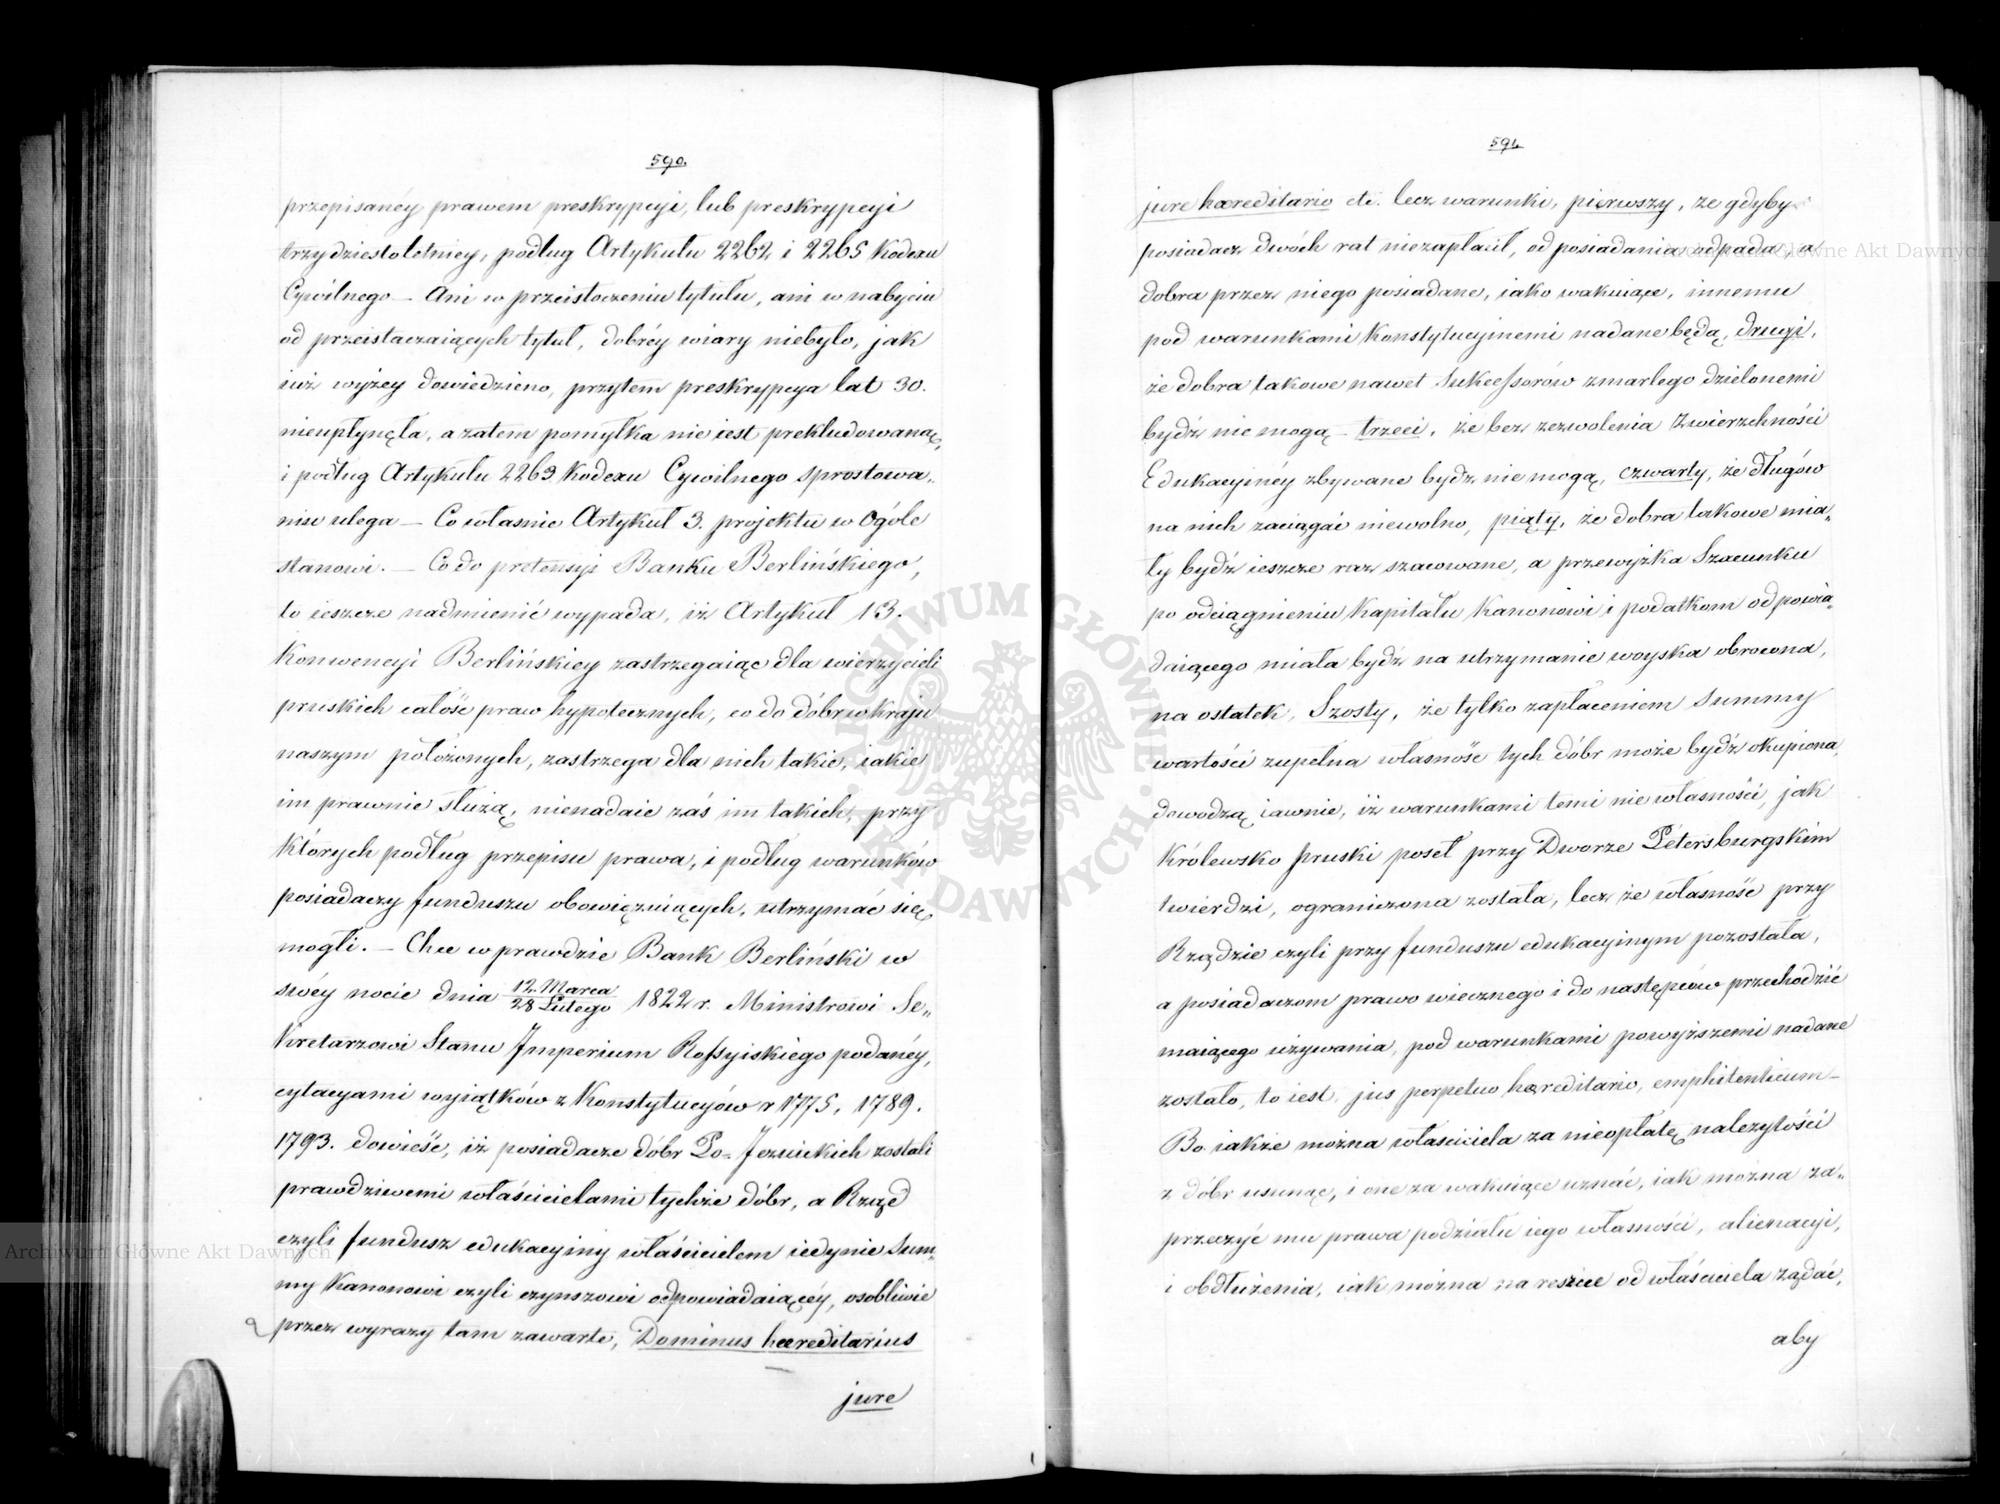 590.
przepisanéy prawem preskrypcyi, lub preskrypcyi
trzydziestoletniey, podług Artykułu 2262 i 2265 Kodexu
Cywilnego – Ani w przeistoczeniu tytułu, ani w nabyciu
od przeistaczaiących tytuł, dobréy wiary niebyło, jak
iuż wyżey dowiedziono, przytem preskrypcya lat 30.
nieupłynęła, a zatem pomyłka nie iest prekludowaną,
i podług Artykułu 2263 Kodexu Cywilnego sprostowa„
niu ulega – Co właśnie Artykuł 3. projektu w Ogóle
stanowi. – Co do pretensyi Banku Berlińskiego,
to ieszcze nadmienić wypada, iż Artykuł 13.
Konwencyi Berlińskiey zastrzegaiąc dla wierzycieli
pruskich całość praw hypotecznych, co do dóbr w kraju
naszym położonych, zastrzega dla nich takie, iakie
im prawnie służą, nienadaie zaś im takich, przy
których podług przepisu prawa, i podług warunków
posiadaczy funduszu obowiązuiących, utrzymać się
mogli. – Chce wprawdzie Bank Berliński w
swéy nocie dnia 12 Marca/28 Lutego 1822 r. Ministrowi Se„
kretarzowi Stanu Imperium Rossyiskiego podanéy,
cytacyami wyiątków z Konstytucyów r 1775, 1789.
1793. dowieść, iż posiadacze dóbr Po-Jezuickich zostali
prawdziwemi właścicielami tychże dóbr, a Rząd
czyli fundusz edukacyiny właścicielem iedynie Sum„
my Kanonowi czyli czynszowi odpowiadaiącéy, osobliwie
przez wyrazy tam zawarte, Dominus haereditarius
jure
591.
jure haereditario etc. lecz warunki, pierwszy, że gdyby
posiadacz dwóch rat niezapłacił, od posiadania odpada, a
dobra przez niego posiadane, iako wakuiące, innemu
pod warunkami Konstytucyinemi nadane będą, drugi,
że dobra takowe nawet Sukcessorów zmarłego dzielonemi
bydź nie mogą – trzeci, że bez zezwolenia Zwierzchności
Edukacyinéy zbywane bydź nie mogą, czwarty, że długów
na nich zaciągać niewolno, piąty, że dobra takowe mia„
ły bydź ieszcze raz szacowane, a przewyżka Szacunku
po odciągnieniu Kapitału Kanonowi i podatkom odpowia„
daiącego miała bydź na utrzymanie woyska obrócona,
na ostatek, Szosty, że tylko zapłaceniem Summy
wartości zupełna własność tych dóbr może bydź okupiona,
dowodzą iawnie, iż warunkami temi nie własności, jak
Królewsko pruski poseł przy Dworze Petersburgskim
twierdzi, ograniczona została, lecz że własność przy
Rządzie czyli przy funduszu edukacyinym pozostała,
a posiadaczom prawo wiecznego i do następców przechodzić
maiącego używania, pod warunkami powyższemi nadane
zostało, to iest, jus perpetuo haereditario, emphiteuticum –
Bo iakże można właściciela za nieopłatę należytości
z dóbr usunąć, i one za wakuiące uznać, iak można za„
przeczyć mu prawa podziału iego własności, alienacyi,
i obdłużenia, iak można na reszcie od właściciela żądać,
aby
ARCHIWUM GŁÓWNE AKT DAWNYCH
Archiwum Główne Akt Dawnych
Archiwum Główne Akt Dawnych